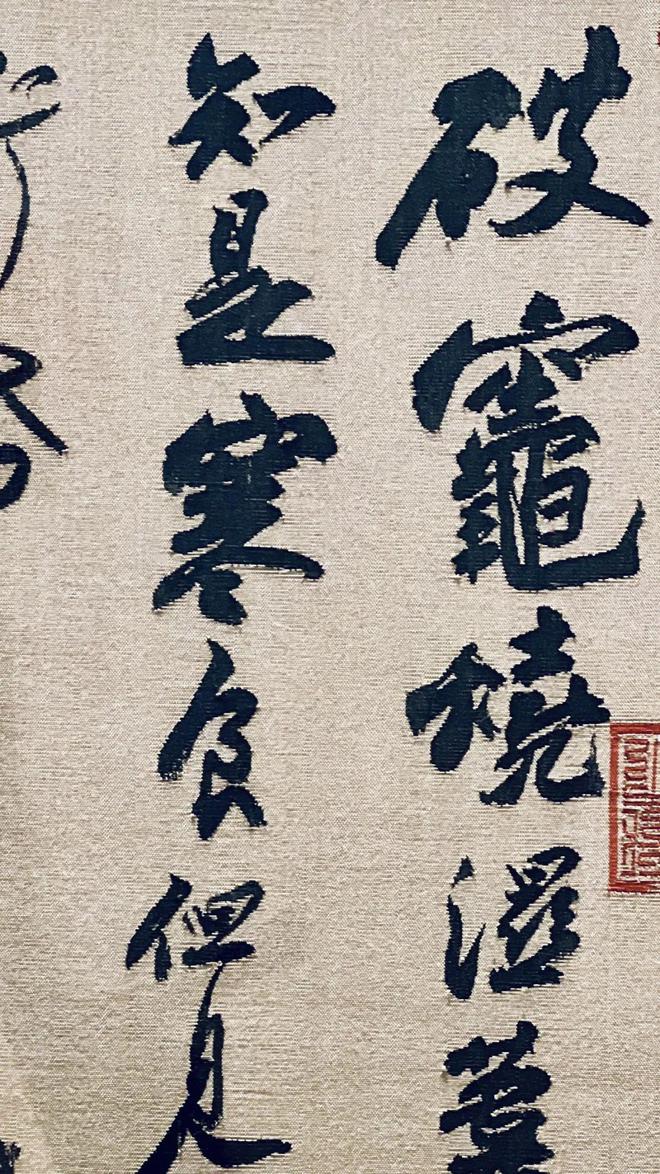 破竈燒濕葦
知是寒食但見